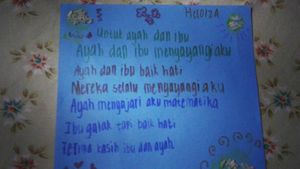 HeloizA
Untuk ayah dan ibu
Ayah dan ibu menyayangi aku
Ayah dan ibu baik hati
Mereka selalu menyayangi aku
Ayah mengajari aku matematika
Ibu galak tapi baik hati
Terima kasih ibu dan ayah